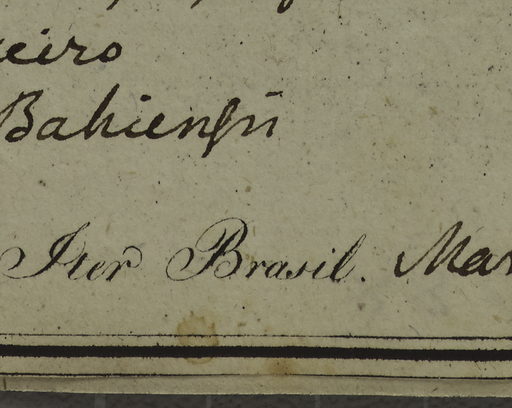 eiro
Bahiensi
Iter Brasil. Mar